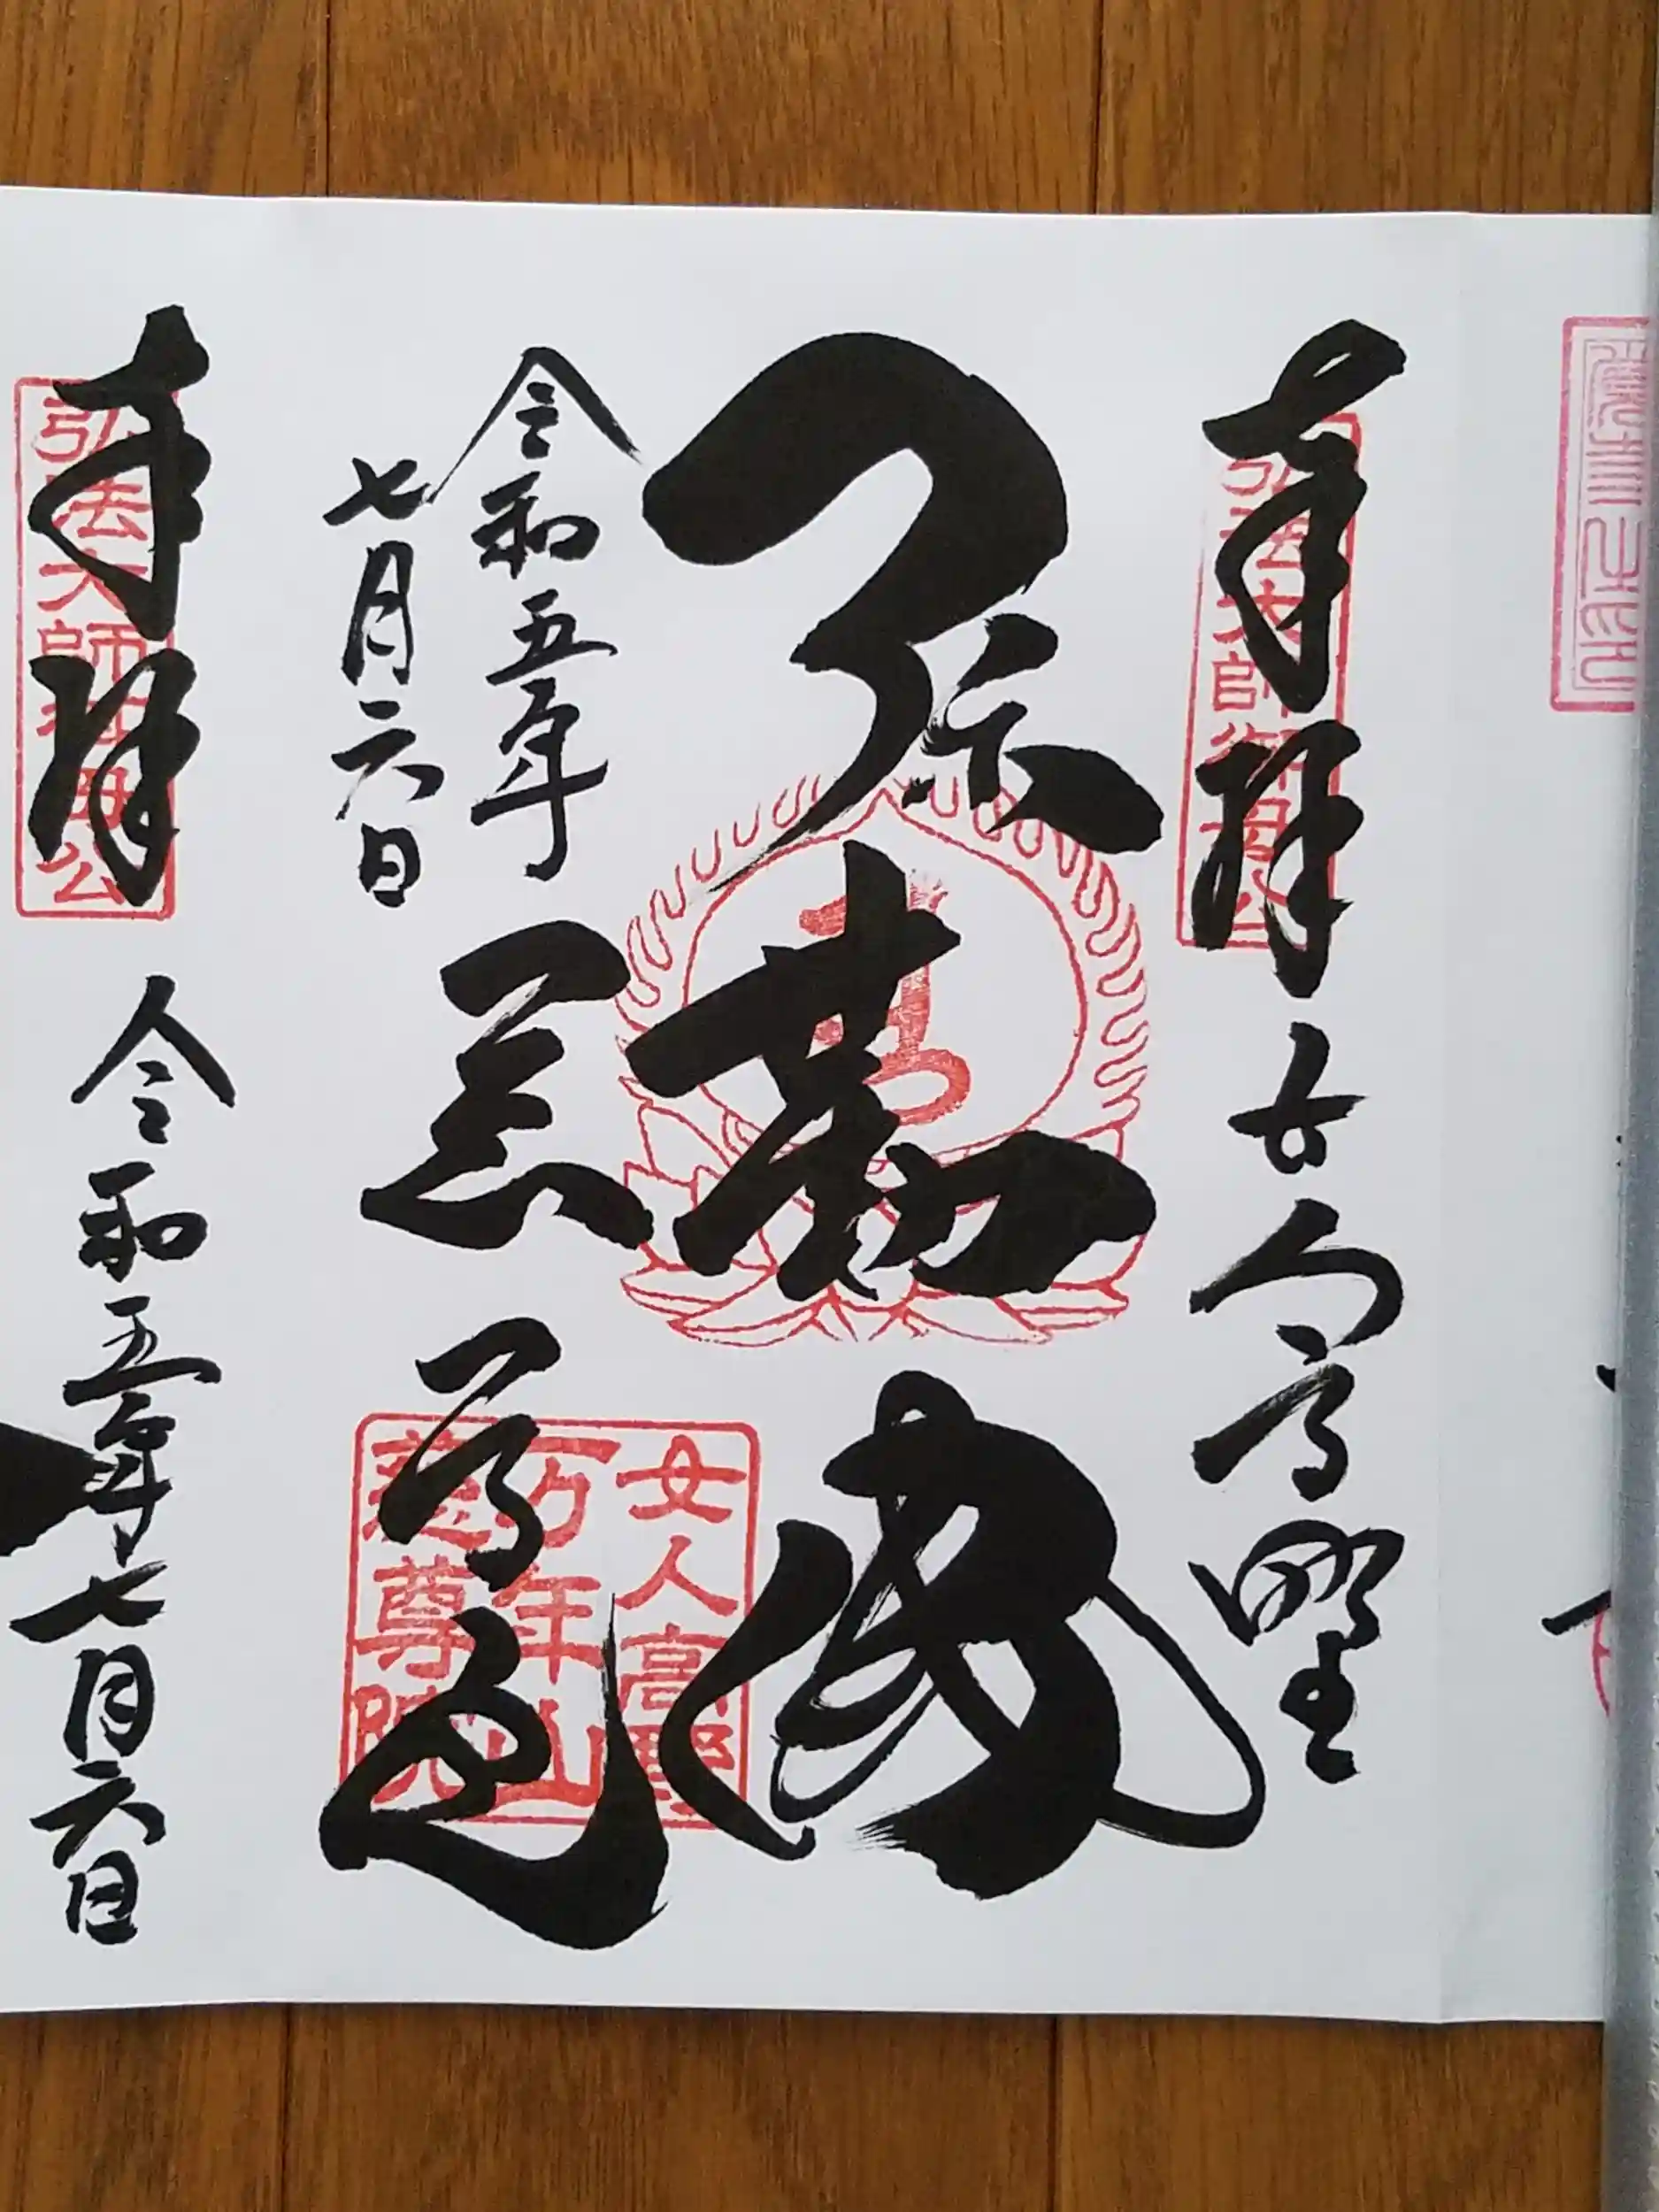 奉拝 女人高野
弘法大師御母公
弥勒佛
令和五年
七月六日
慈尊院
女人高野
万年山
慈尊院
奉拝 令和五年七月六日
弘法大師御母公